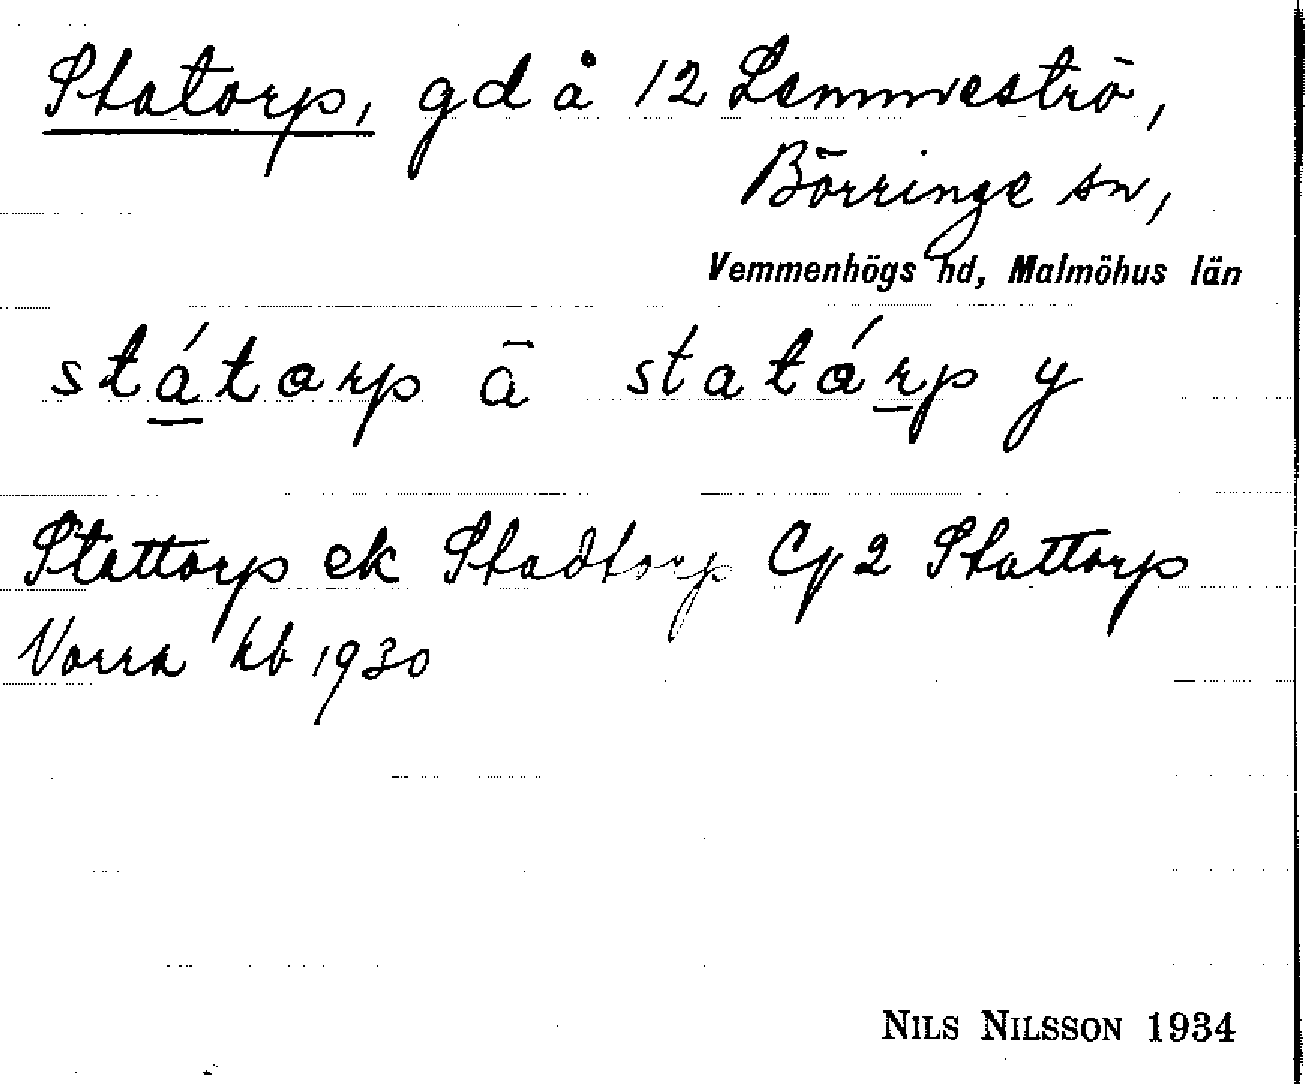 Statorp, gd å 12 Lemmeströ,
Börringe sn,
Vemmenhögs hd, Malmöhus län
státorp ā statórp y
Stattorp ek Stadtorp Cy 2 Stattorp
Vorra kb 1930
NILS NILSSON 1934